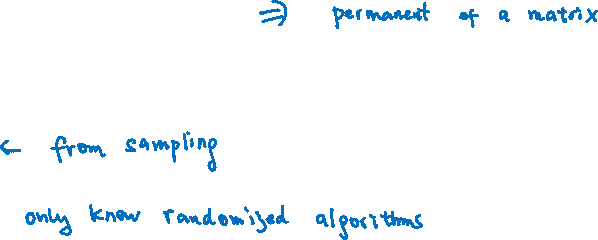 ⇒ permanent of a matrix
← from sampling
only know randomized algorithms